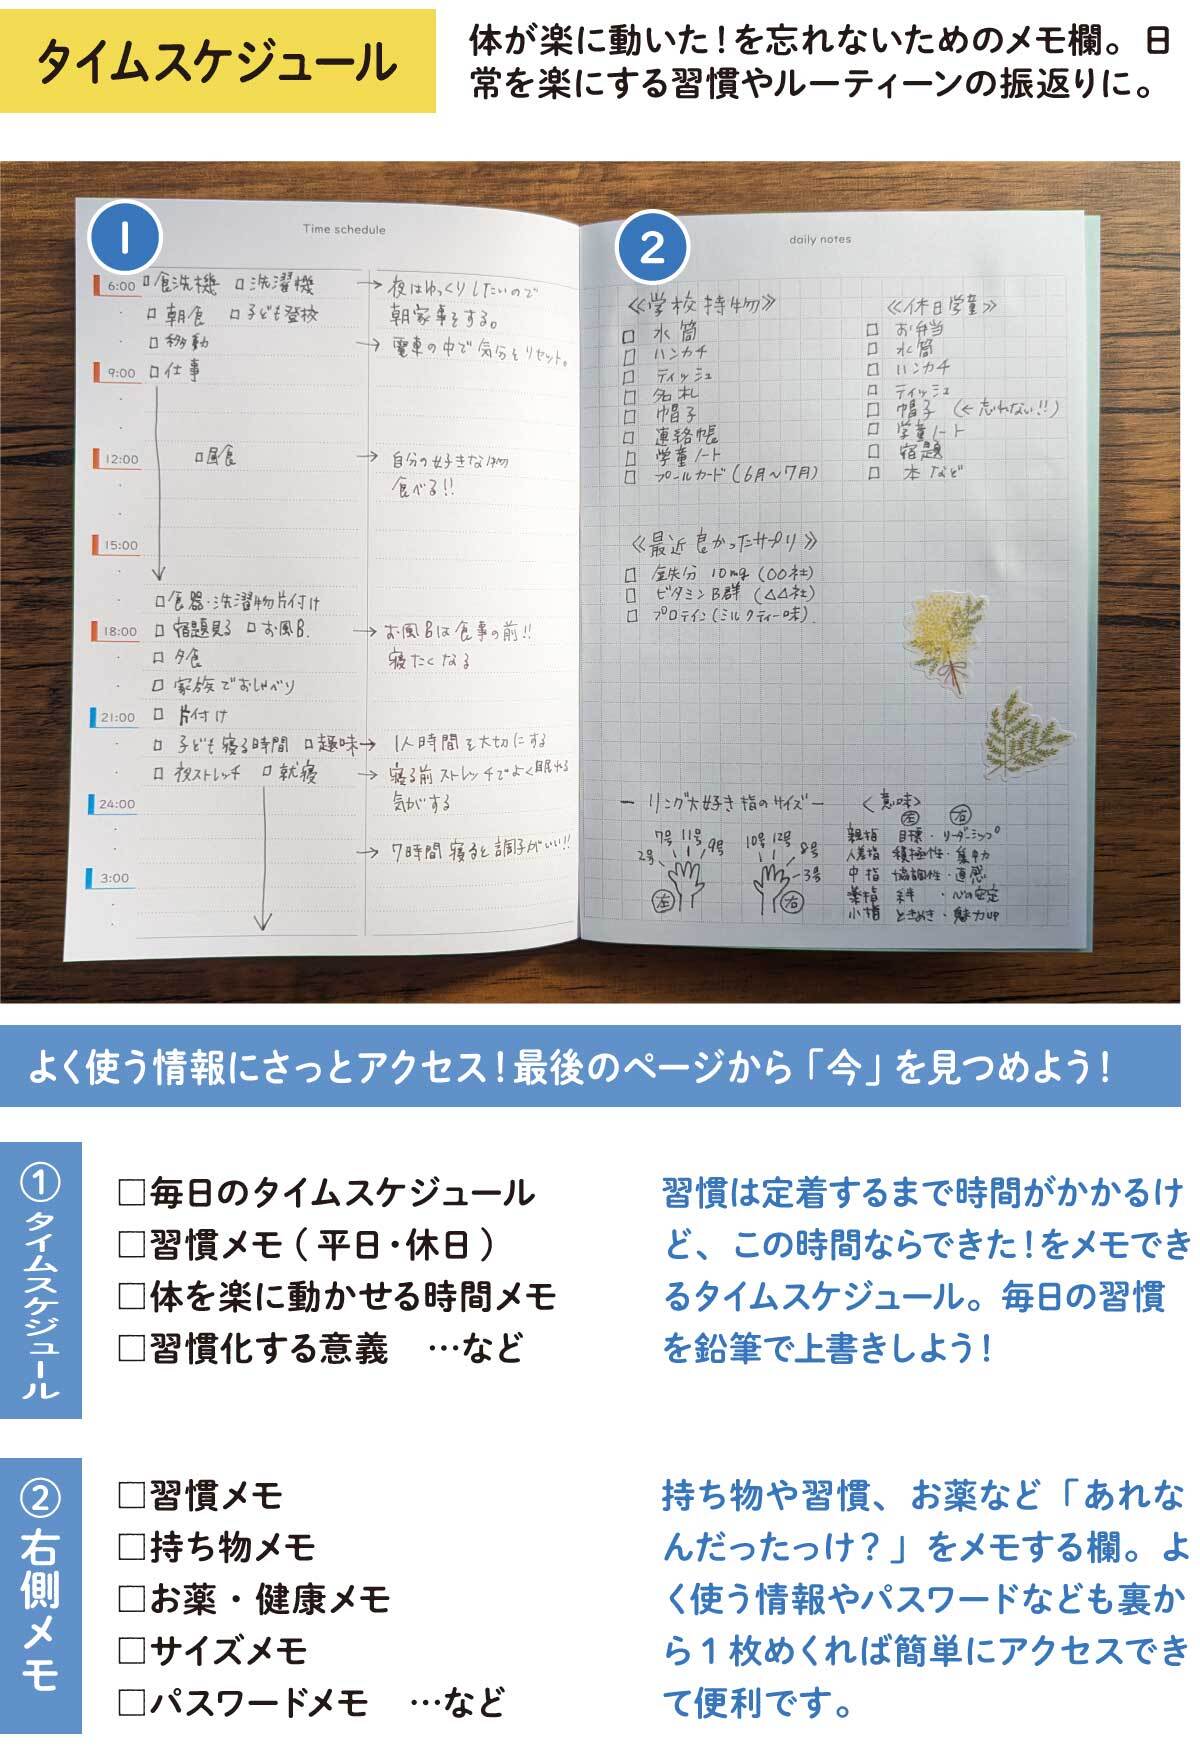 タイムスケジュール
体が楽に動いた！を忘れないためのメモ欄。日
常を楽にする習慣やルーティーンの振返りに。
1
Time schedule
6:00 □食洗機 □洗濯機 →夜はゆっくりしたいので
□朝食 □子ども登校 朝家事をする。
□移動 →電車の中で気分をリセット。
9:00 □仕事
12:00 □昼食 →自分の好きな物
食べる!!
15:00
□食器・洗濯物片付け
18:00 □宿題見る □お風呂 →お風呂は食事の前!!
□夕食 寝たくなる
□家族でおしゃべり
21:00 □片付け
□子ども寝る時間 □趣味→1人時間を大切にする
□夜ストレッチ □就寝 →寝る前ストレッチでよく眠れる
24:00 気がする
→7時間寝ると調子がいい!!
3:00
2
daily notes
《学校持ち物》
□水筒
□ハンカチ
□ティッシュ
□名札
□帽子
□連絡帳
□学童ノート
□プールカード(6月〜7月)
《休日学童》
□お弁当
□水筒
□ハンカチ
□ティッシュ
□帽子(←忘れない!!)
□学童ノート
□宿題
□本など
《最近良かったサプリ》
□鉄分 10mg (〇〇社)
□ビタミンB群 (△△社)
□プロテイン(ミルクティー味)
ーリング大好き指のサイズー
7号 11号 9号 2号 左
10号 12号 8号 3号 右
<意味>
左 右
親指 目標・リーダーシップ
人差指 積極性・集中力
中指 協調性・直感
薬指 絆・心の安定
小指 ときめき・魅力UP
よく使う情報にさっとアクセス！最後のページから「今」を見つめよう！
①タイムスケジュール
□毎日のタイムスケジュール
□習慣メモ(平日・休日)
□体を楽に動かせる時間メモ
□習慣化する意義 …など
習慣は定着するまで時間がかかるけ
ど、この時間ならできた！をメモでき
るタイムスケジュール。毎日の習慣
を鉛筆で上書きしよう！
②右側メモ
□習慣メモ
□持ち物メモ
□お薬・健康メモ
□サイズメモ
□パスワードメモ …など
持ち物や習慣、お薬など「あれな
んだったっけ？」をメモする欄。よ
く使う情報やパスワードなども裏か
ら1枚めくれば簡単にアクセスでき
て便利です。